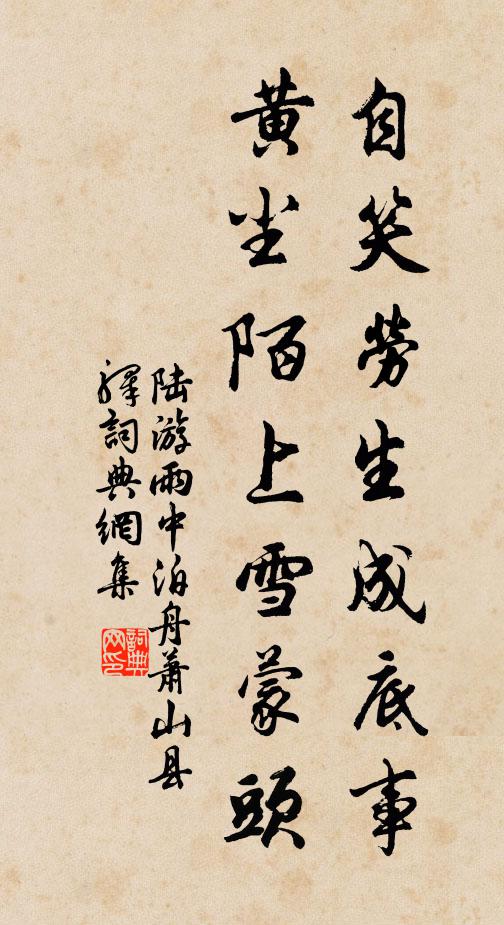 自笑勞生成底事
黃尘陌上雪蒙頭
陆游雨中泊舟萧山县
驛詞典網集
詞典网印